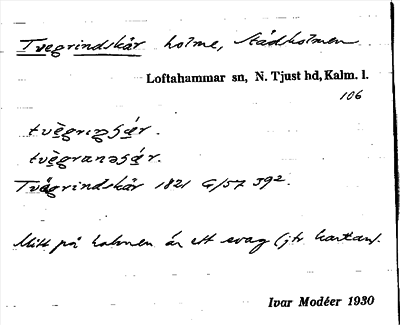 Tvegrindskär holme, Städsholmen
Loftahammar sn, N. Tjust hd, Kalm. l.
106
tvègrinʂä́r.
tvègranəʂä́r.
Tvågrindskär 1821 G/57 39².
Mitt på holmen är ett svag (jfr kartan).
Ivar Modéer 1930